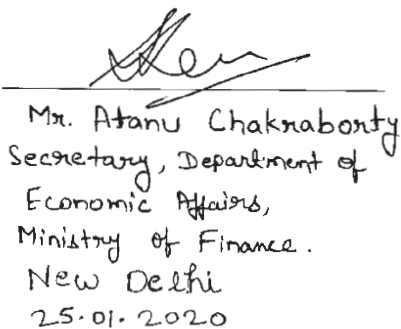 Mr. Atanu Chakraborty
Secretary, Department of
Economic Affairs,
Ministry of Finance.
New Delhi
25.01.2020